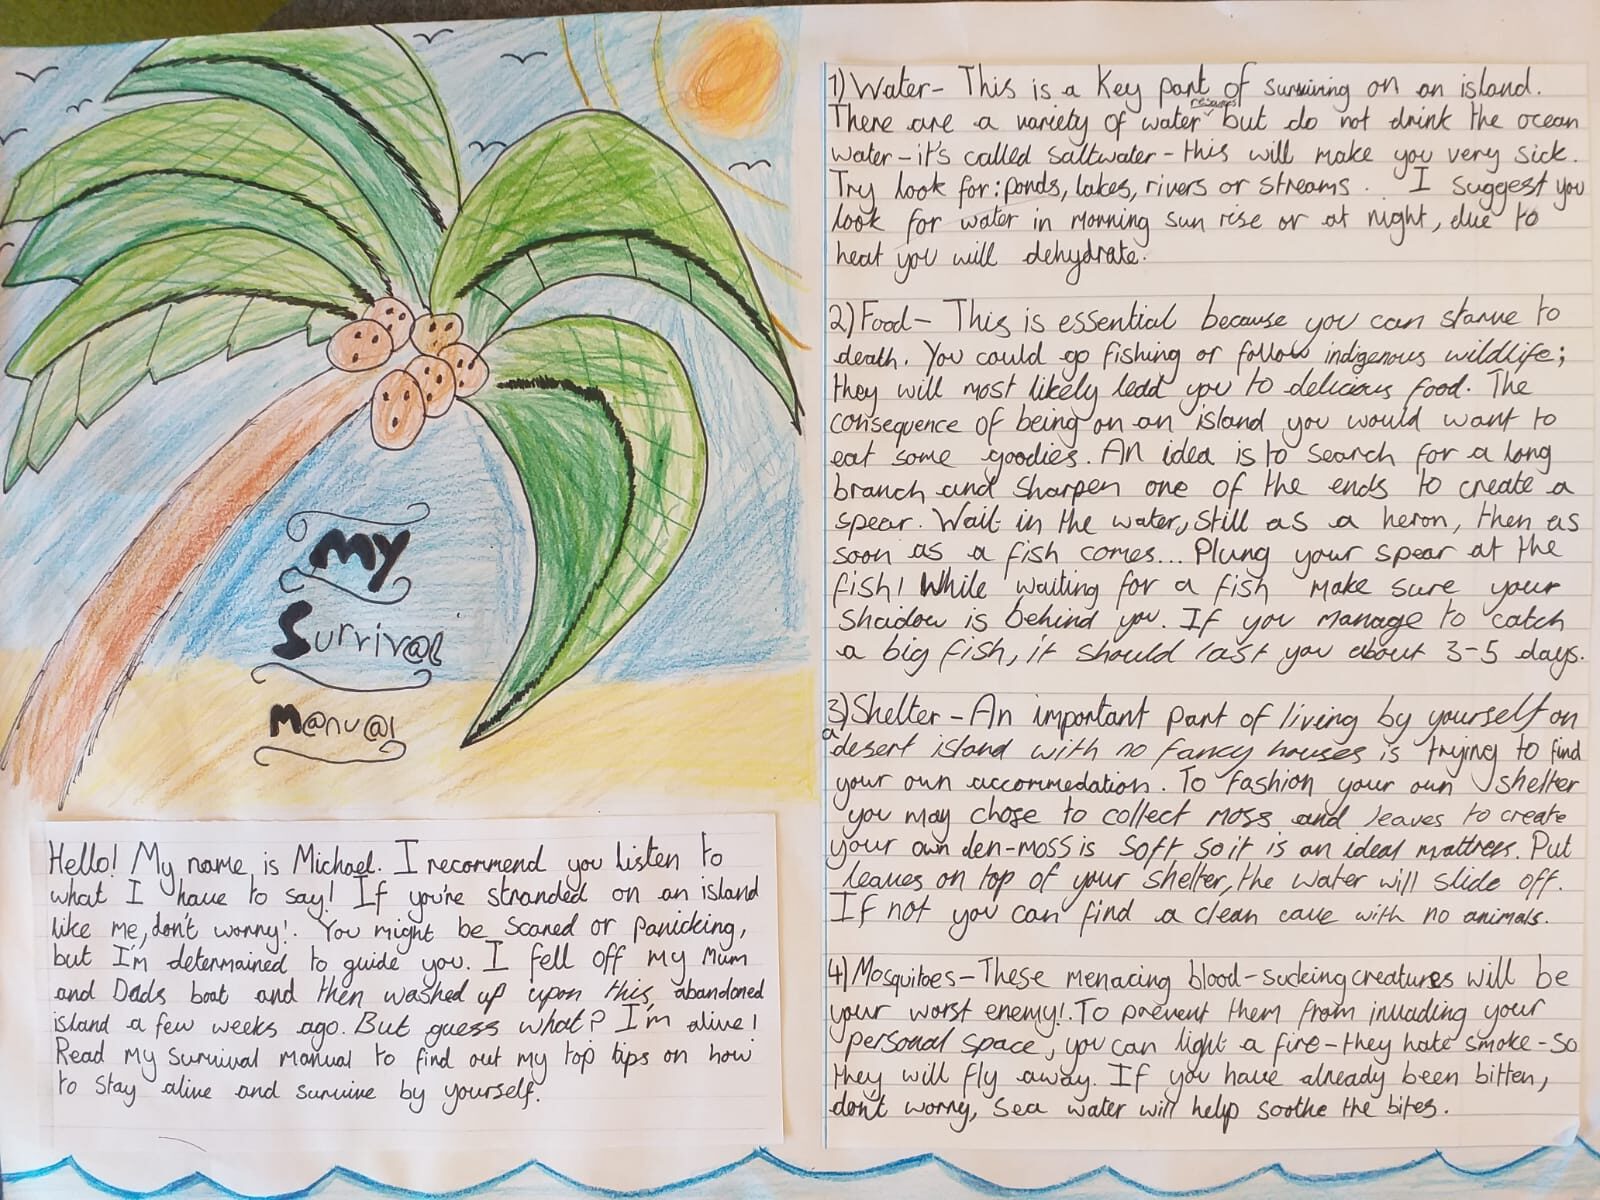 My
Survival
Manual
Hello! My name is Michael. I recommend you listen to
what I have to say! If you're stranded on an island
like me, don't worry!. You might be scared or panicking,
but I'm determained to guide you. I fell off my Mum
and Dads boat and then washed up upon this abandoned
island a few weeks ago. But guess what? I'm alive!
Read my survival manual to find out my top tips on how
to stay alive and survive by yourself.
1) Water- This is a key part of surviving on an island.
There are a variety of water but do not drink the ocean
water-it's called saltwater-this will make you very sick.
Try look for: ponds, lakes, rivers or streams. I suggest you
look for water in morning sun rise or at night, due to
heat you will dehydrate.
2) Food- This is essential because you can starve to
death. You could go fishing or follow indigenous wildlife;
they will most likely lead you to delicious food. The
consequence of being on an island you would want to
eat some goodies. An idea is to search for a long
branch and sharpen one of the ends to create a
spear. Wait in the water, still as a heron, then as
soon as a fish comes... Plung your spear at the
fish! While waiting for a fish make sure your
shadow is behind you. If you manage to catch
a big fish, it should last you about 3-5 days.
3) Shelter- An important part of living by yourself on
a desert island with no fancy houses is trying to find
your own accommedation. To fashion your own shelter
you may chose to collect moss and leaves to create
your own den-moss is soft so it is an ideal mattress. Put
leaves on top of your shelter, the water will slide off.
If not you can find a clean cave with no animals.
4) Mosquitoes- These menacing blood-sucking creatures will be
your worst enemy!. To prevent them from invading your
personal space, you can light a fire-they hate smoke-so
they will fly away. If you have already been bitten,
don't worry, sea water will help soothe the bites.